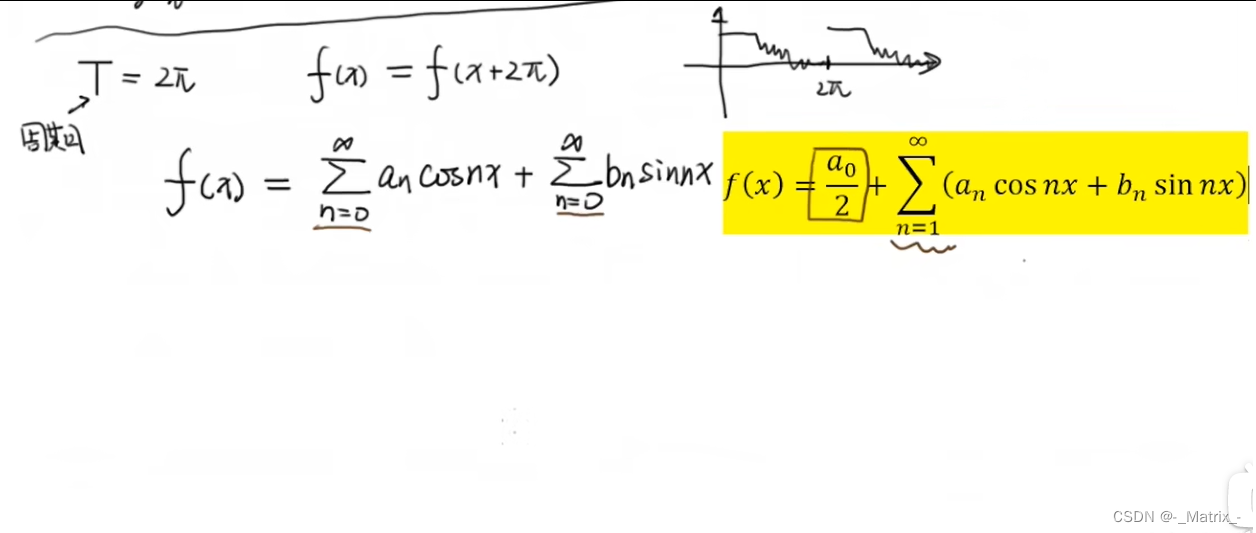 T = 2π f(x) = f(x+2π)
2π
周期
f(x) = ∑_{n=0}^{∞} aₙ cosnx + ∑_{n=0}^{∞} bₙ sinnx f(x) = a₀/2 + ∑_{n=1}^{∞} (aₙ cos nx + bₙ sin nx)
CSDN @-_Matrix_-